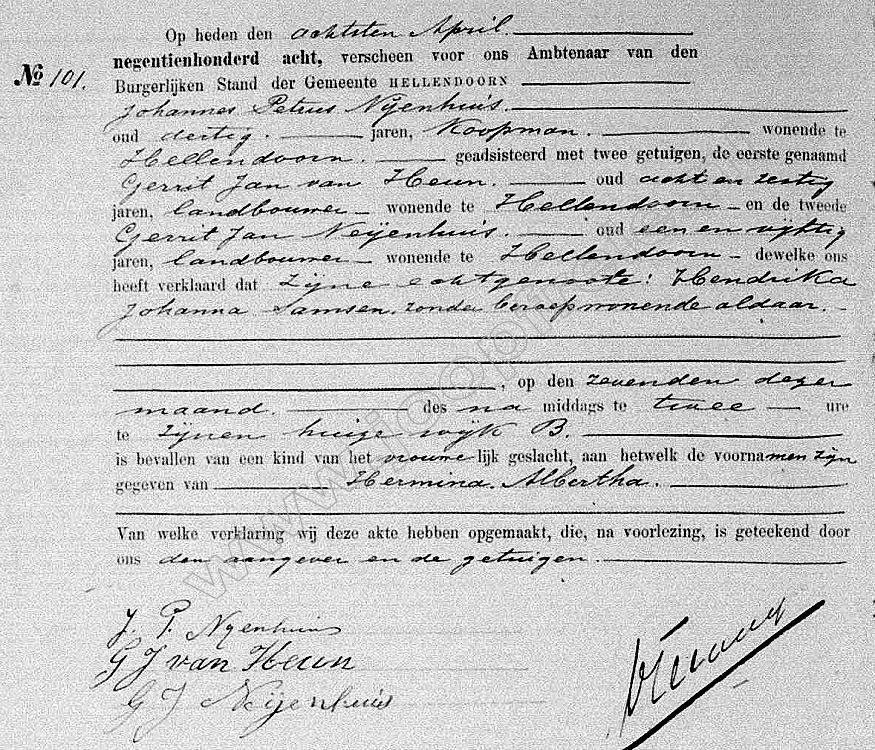 Op heden den achtsten April.
negentienhonderd acht, verscheen voor ons Ambtenaar van den
No 101.
Burgerlijken Stand der Gemeente HELLENDOORN
Johannes Petrus Nijenhuis.
oud dertig. jaren, Koopman. wonende te
Hellendoorn. geadsisteerd met twee getuigen, de eerste genaamd
Gerrit Jan van Heun. oud acht en zestig
jaren, landbouwer wonende te Hellendoorn en de tweede
Gerrit Jan Neijenhuis. oud een en vijftig
jaren, landbouwer wonende te Hellendoorn dewelke ons
heeft verklaard dat zijne echtgenoote: Hendrika
Johanna Samsen, zonder beroep wonende aldaar.
, op den zevenden dezer
maand. des na middags te twee ure
te zijnen huize wijk B.
is bevallen van een kind van het vrouwe lijk geslacht, aan hetwelk de voornamen zijn
gegeven van Hermina Albertha.
Van welke verklaring wij deze akte hebben opgemaakt, die, na voorlezing, is geteekend door
ons den aangever en de getuigen.
J. P. Nyenhuis
G J van Heun
G J Neijenhuis